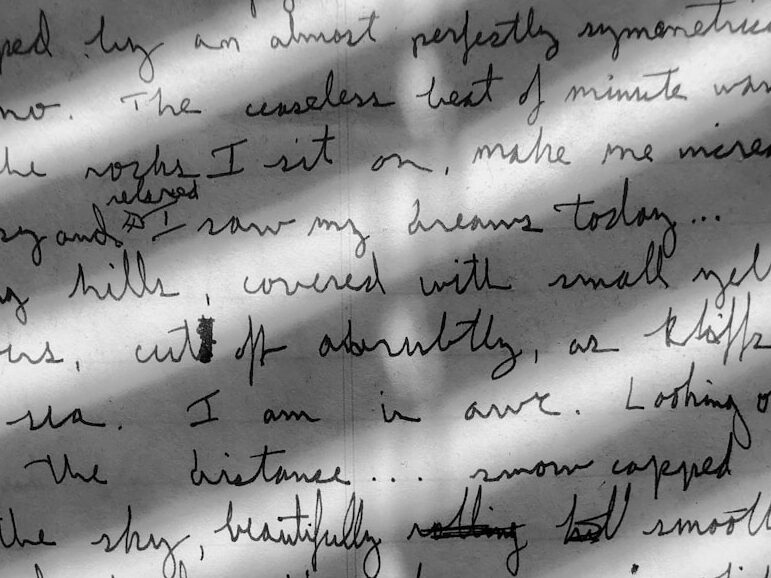 ped by an almost perfectly symmetrica
no. The ceaseless beat of minute wav
the rocks I sit on, make me increa
relaxed
sy and I saw my dreams today...
g hills, covered with small yell
ers, cut off abrubtly, as kliffs
sea. I am in awe. Looking o
the distance... snow capped
the sky, beautifully smooth